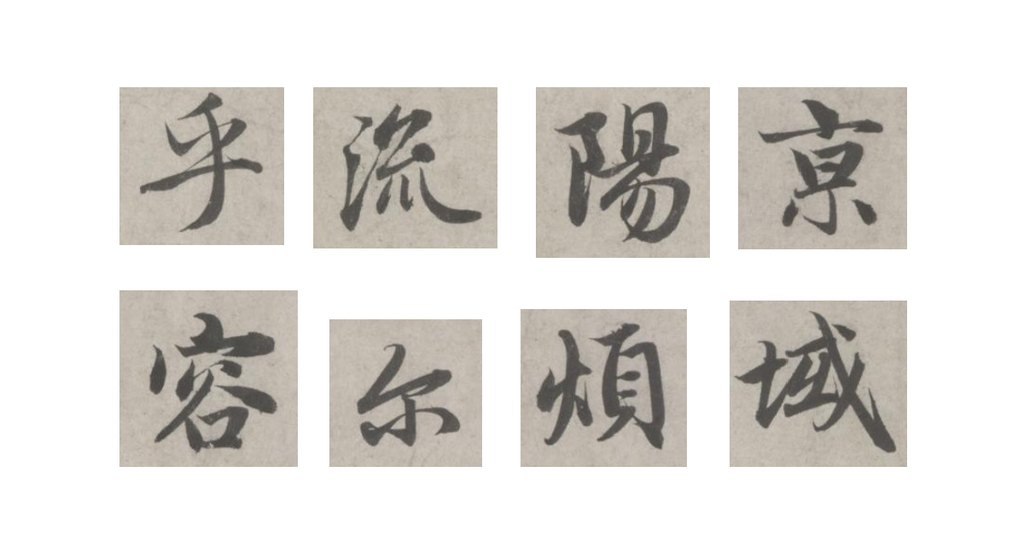 乎流陽京
容尔煩域